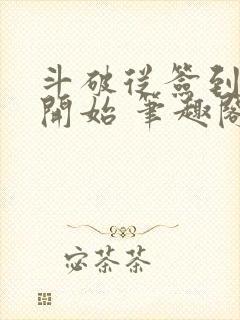 斗破從簽到
開始 筆趣閣
宓茶茶